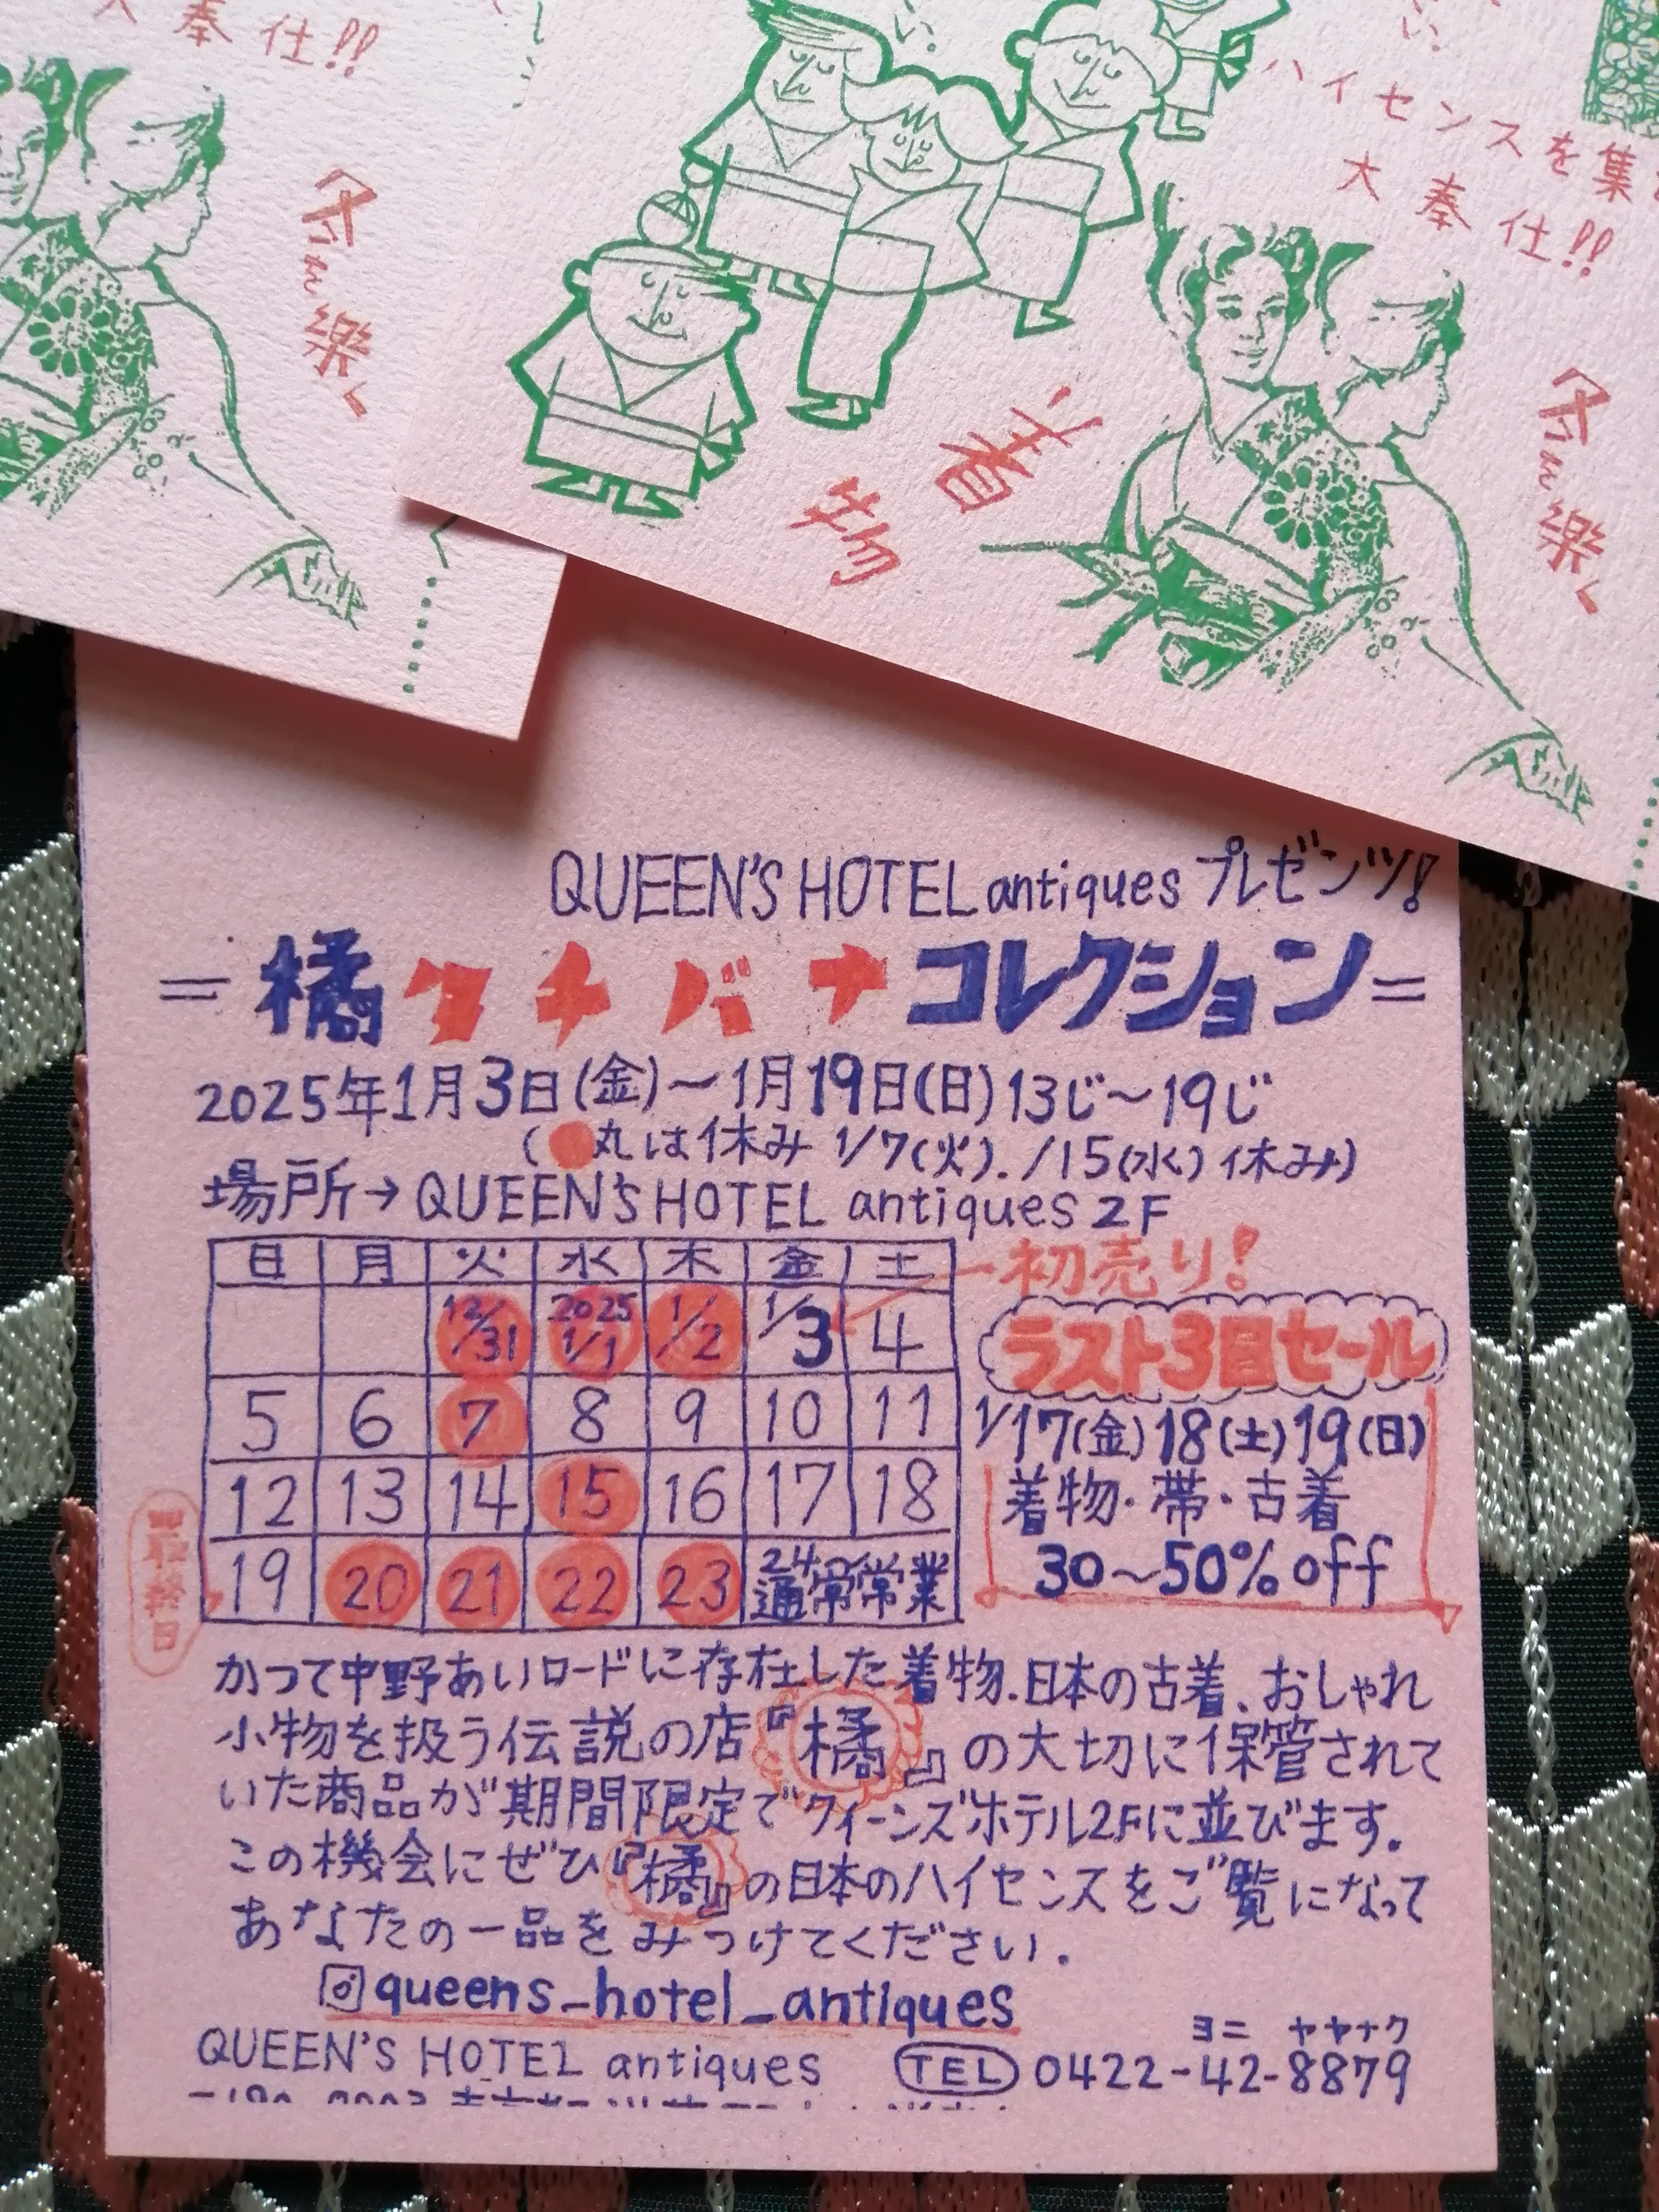 大奉仕!!
い。
い。
ハイセンスを集
大奉仕!!
着物
QUEEN'S HOTEL antiques プレゼンツ!
=橘タチバナコレクション=
2025年1月3日(金)〜1月19日(日)13じ〜19じ
(●丸は休み 1/7(火)./15(水)休み)
場所→QUEEN'S HOTEL antiques 2F
日 月 火 水 木 金 土
12/31 2025 1/1 1/2 1/3 4
5 6 7 8 9 10 11
12 13 14 15 16 17 18
19 20 21 22 23 24〜通常営業
最終日
初売り!
ラスト3日セール
1/17(金)18(土)19(日)
着物・帯・古着
30〜50%off
かつて中野あいロードに存在した着物.日本の古着、おしゃれ
小物を扱う伝説の店『橘』の大切に保管されて
いた商品が期間限定でクィーンズホテル2Fに並びます。
この機会にぜひ『橘』の日本のハイセンスをご覧になって
あなたの一品をみつけてください。
queens_hotel_antiques
QUEEN'S HOTEL antiques
ヨニ ヤヤナク
TEL 0422-42-8879